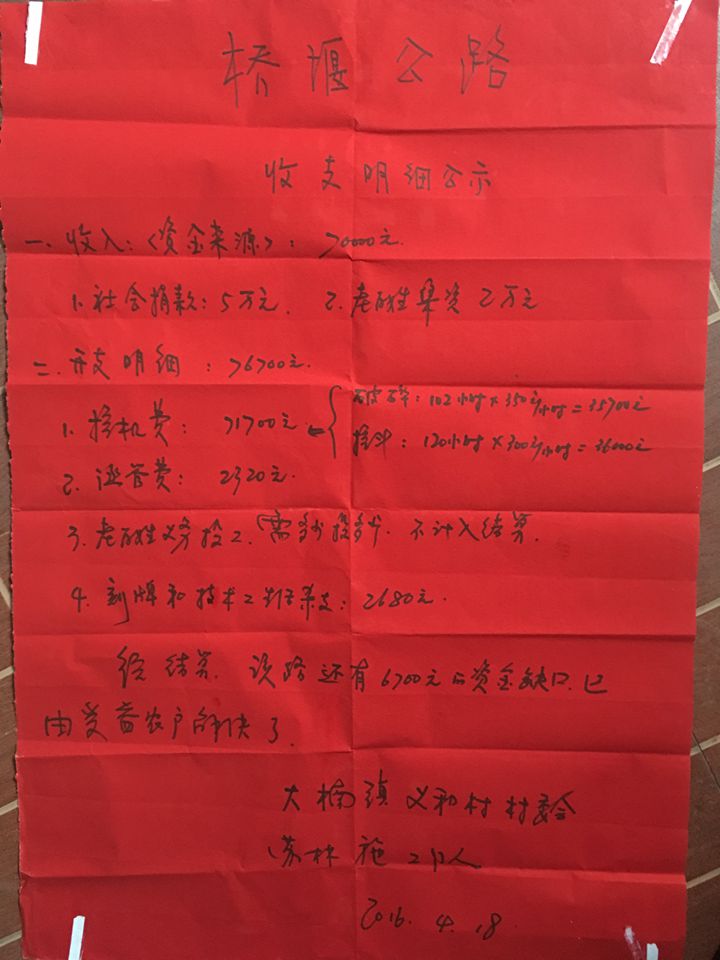 桥堰公路
收支明细公示
一、收入:〈资金来源〉: 70000元.
1、社会捐款: 5万元. 2、老百姓集资2万元
二、开支明细: 76700元.
1、挖机费: 71700元 { 破碎: 102小时×350元/小时=35700元
挖斗: 120小时×300元/小时=36000元
2、涵管费: 2320元
3、老百姓义务投工(需多少投多少. 不计入结算.
4、刻牌和技术工班杂支: 2680元.
经结算. 该路还有6700元的资金缺口. 已
由受益农户解决了.
大楠镇义和村村委会
施工负人
2016.4.18